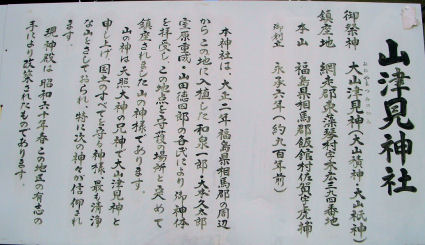 山津見神社
御祭神　大山津見神(大山積神・大山祇神)
おおやまつみのかみ
鎮座地　網走郡東藻琴村字末広三九四番地
本山　福島県相馬郡飯館村佐須字虎捕
御創立　永承六年(約九百年前)
本神社は、大正二年福島県相馬郡の周辺
からこの地に入植した和泉一郎・大和久太郎
室原重成・山田徳四郎の各氏により御神体
を拝受し、この地点を守護の場所と定めて
鎮座されました山の神様であります。
山の神は天照大神の兄神で大山津見神と
申し上げ国土のすべてを守る神様で最も清浄
な山としておられ、特に次の神々が信仰され
ます。
現神殿は昭和六十年春この地区の有志の
手により改築されたものであります。